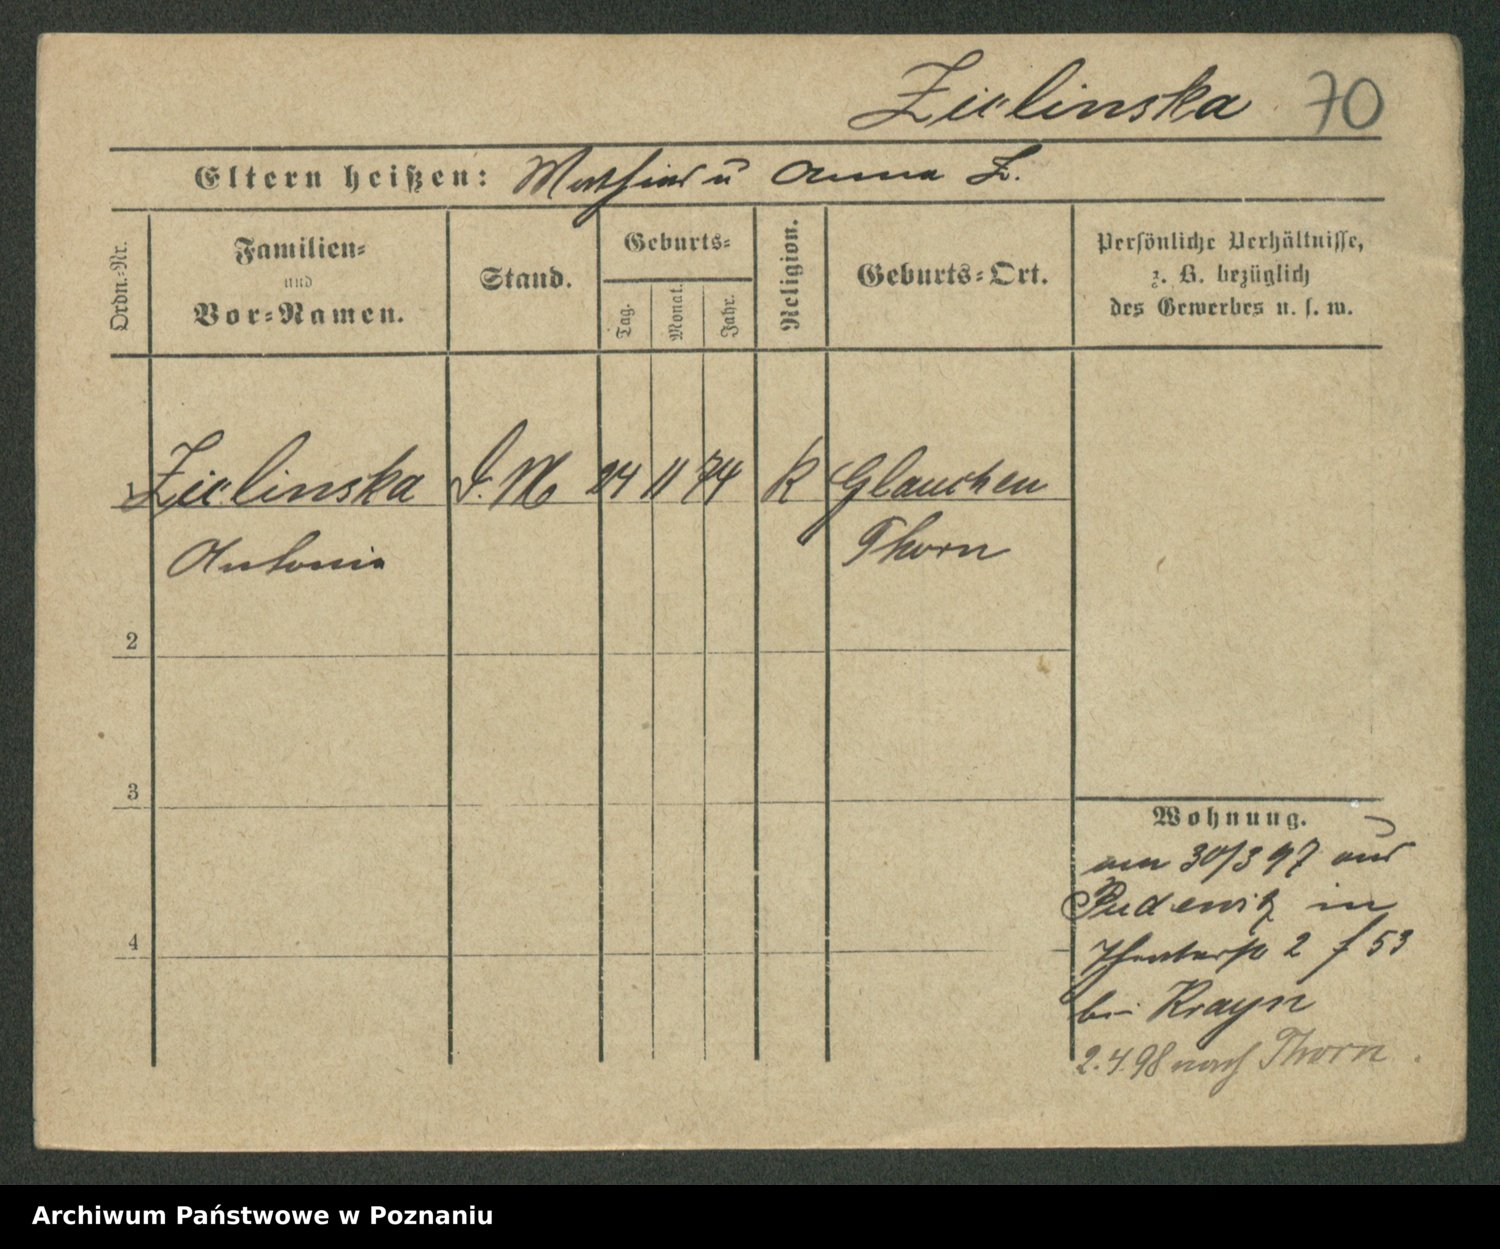 Zielinska 70
Eltern heißen: Mathias u Anna Z.
Ordn.-Nr.
Familien-
und
Vor-Namen.
Stand.
Geburts-
Tag.
Monat.
Jahr.
Religion.
Geburts-Ort.
Persönliche Verhältnisse,
z. B. bezüglich
des Gewerbes u. s. w.
Zielinska D. M 24 11 74 K Glauchen
Antonie Thorn
2
3
4
Wohnung.
am 30/3 97 aus
Pudewitz in
2 53
bei Krayn
2.4.98 nach Thorn.
Archiwum Państwowe w Poznaniu